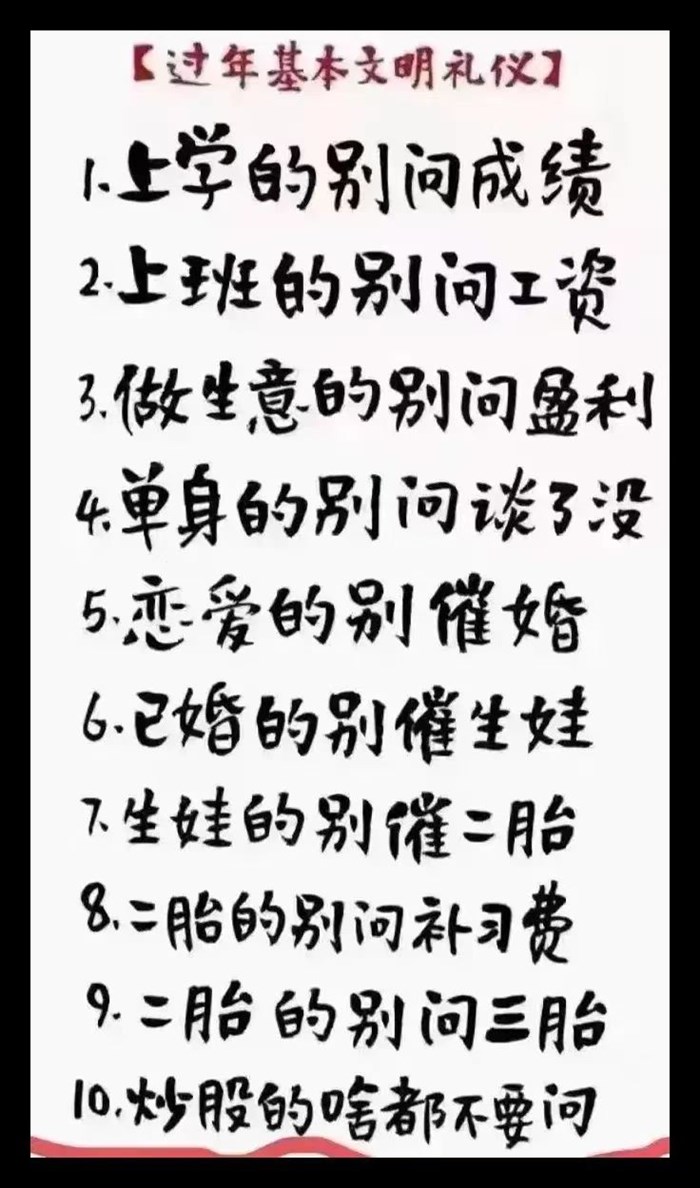 【过年基本文明礼仪】
1.上学的别问成绩
2.上班的别问工资
3.做生意的别问盈利
4.单身的别问谈了没
5.恋爱的别催婚
6.已婚的别催生娃
7.生娃的别催二胎
8.二胎的别问补习费
9.二胎的别问三胎
10.炒股的啥都不要问